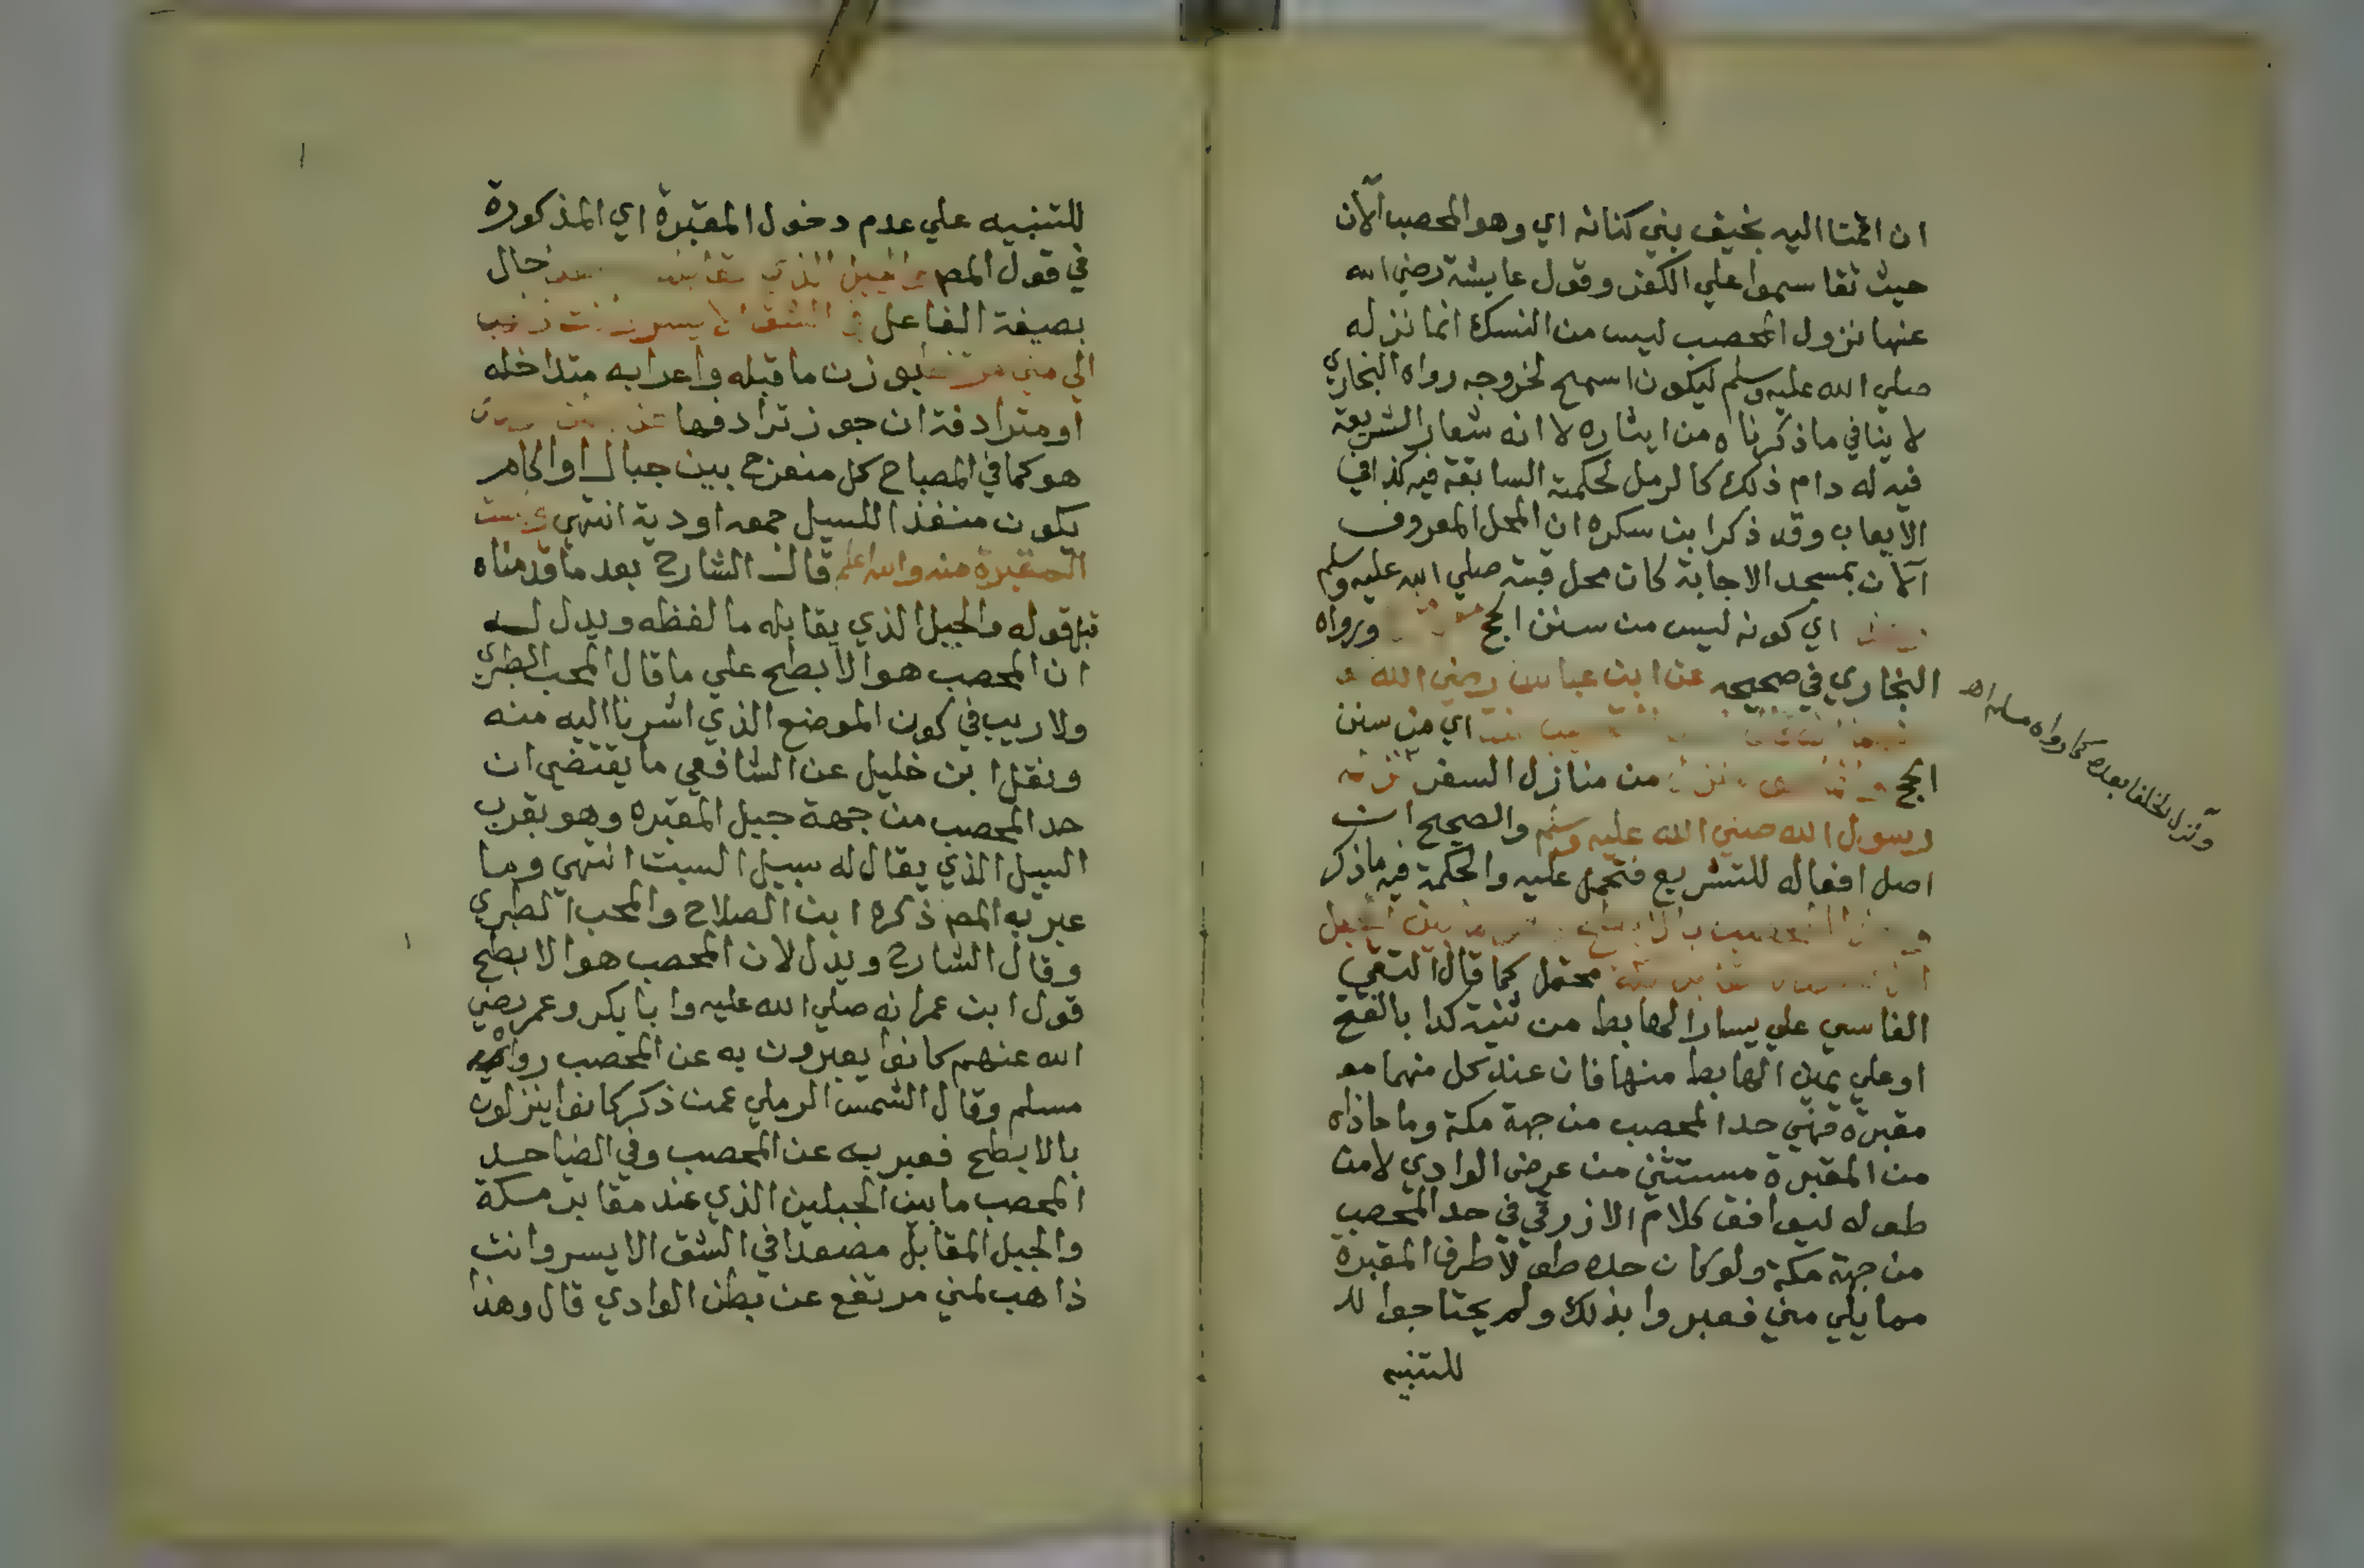 ان اتمتا اليه بخيف بني كنانه اي وهو المحصب الآن
حيث تقاسموا علي الكفر وقول عايشة رضي الله
عنها نزول المحصب ليس من النسك انما نزله
صلي الله عليه وسلم ليكون اسمح لخروجه رواه البخاري
لا ينافي ما ذكرناه من ايثاره لا انه شعار الشريعة
فيه له دام ذلك كالرمل لحكمته السابقة فيه كذا في
الايعاب وقد ذكر ابن سكره ان المحل المعروف
الآن بمسجد الاجابة كان محل قبته صلي الله عليه وسلم
اي كونه ليس من سنن الحج ورواه
البخاري في صحيحه عن ابن عباس رضي الله
اي من سنن
الحج من منازل السفر نزله
رسول الله صلي الله عليه وسلم والصحيح ان
اصل افعاله للتشريع فتحمل عليه والحكمة فيه ما ذكر
بالابطح بين الجبل
محتمل كما قال التقي
الفاسي علي يسار الهابط من ثنية كدا بالفتح
او علي يمين الهابط منها فان عند كل منهما مو
مقبرة فهي حد المحصب من جهة مكة وما حاذاه
من المقبرة مستثني من عرض الوادي لا من
طوله ليوافق كلام الازرقي في حد المحصب
من جهة مكة ولو كان حده طولا طرف المقبرة
مما يلي مني فعبروا بذلك ولم يحتاجوا لل
للتنبيه
ونزله الخلفا بعده كما رواه مسلم اه
للتنبيه علي عدم دخول المقبرة اي المذكورة
في قول المص والجبل الذي يقابله حال
بصيغة الفاعل في الشق الايسر وانت ذاهب
الي مني مرتفعا بوزن ما قبله واعرابه متداخله
او مترادفة ان جوز ترادفها عن بطن الوادي
هو كما في المصباح كل منفرج بين جبال او اكام
يكون منفذا للسيل جمعه اودية انتهي وليست
المقبرة منه والله اعلم قال الشارح بعد ما قدمناه
قبل قوله والجبل الذي يقابله ما لفظه ويدل له
ان المحصب هو الابطح علي ما قال المحب الطبري
ولا ريب في كون الموضع الذي اشرنا اليه منه
ونقل ابن خليل عن الشافعي ما يقتضي ان
حد المحصب من جهة جبل المقبره وهو بقرب
السبيل الذي يقال له سبيل الست انتهي وما
عبر به المص ذكره ابن الصلاح والمحب الطبري
وقال الشارح ويدل لان المحصب هو الابطح
قول ابن عمر انه صلي الله عليه وابا بكر وعمر رضي
الله عنهم كانوا يعبرون به عن المحصب رواه
مسلم وقال الشمس الرملي عمن ذكر كانوا ينزلون
بالابطح فعبر به عن المحصب وفي الضيا حد
المحصب ما بين الجبلين الذي عند مقابر مكة
والجبل المقابل مصعدا في الشق الايسر وانت
ذاهب لمني مرتفع عن بطن الوادي قال وهذا